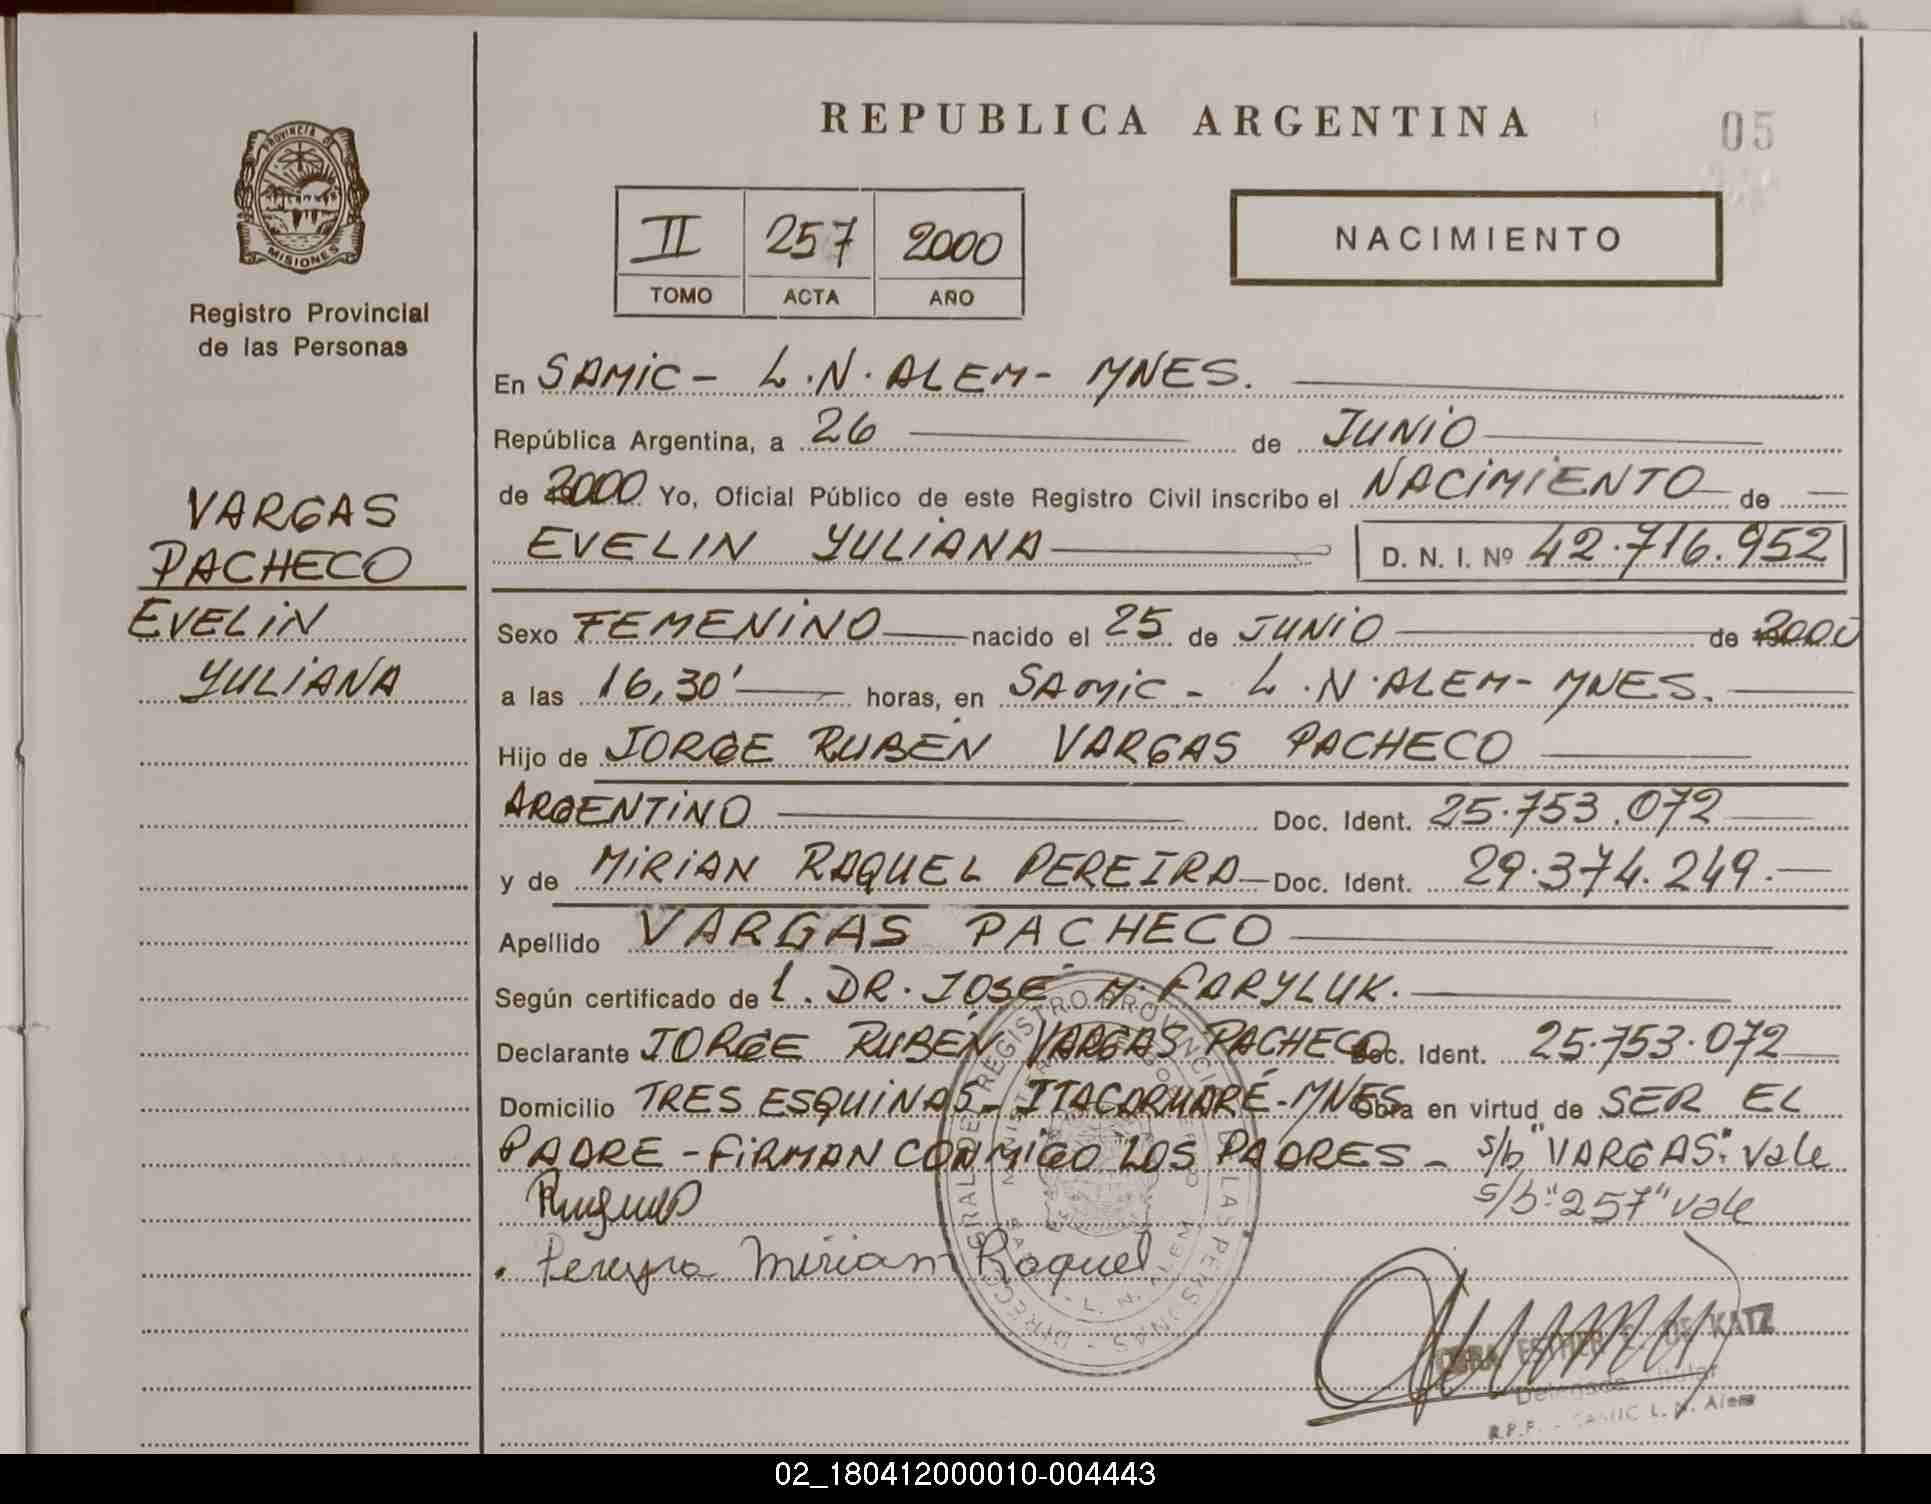 REPUBLICA ARGENTINA
05
PROVINCIA DE
MISIONES
Registro Provincial
de las Personas
II 257 2000
TOMO ACTA AÑO
NACIMIENTO
VARGAS
PACHECO
EVELIN
YULIANA
En SAMIC - L.N. ALEM - MNES.
República Argentina, a 26 de JUNIO
de 2000 Yo, Oficial Público de este Registro Civil inscribo el NACIMIENTO de
EVELIN YULIANA D. N. I. Nº 42.716.952
Sexo FEMENINO nacido el 25 de JUNIO de 2000
a las 16,30' horas, en SAMIC - L.N. ALEM - MNES.
Hijo de JORGE RUBEN VARGAS PACHECO
ARGENTINO Doc. Ident. 25.753.072
y de MIRIAN RAQUEL PEREIRA Doc. Ident. 29.374.249.
Apellido VARGAS PACHECO
Según certificado de L. DR. JOSÉ M. FARYLUK.
Declarante JORGE RUBEN VARGAS PACHECO Doc. Ident. 25.753.072
Domicilio TRES ESQUINAS - ITACARUARÉ - MNES Obra en virtud de SER EL
PADRE - FIRMAN CONMIGO LOS PADRES - s/b "VARGAS": Vale
s/b "257" vale
Pereyra Miriam Raquel
ESTHER E. DE KATZ
Titular
R.P.P. - SAMIC L. N. Alem
02_180412000010-004443